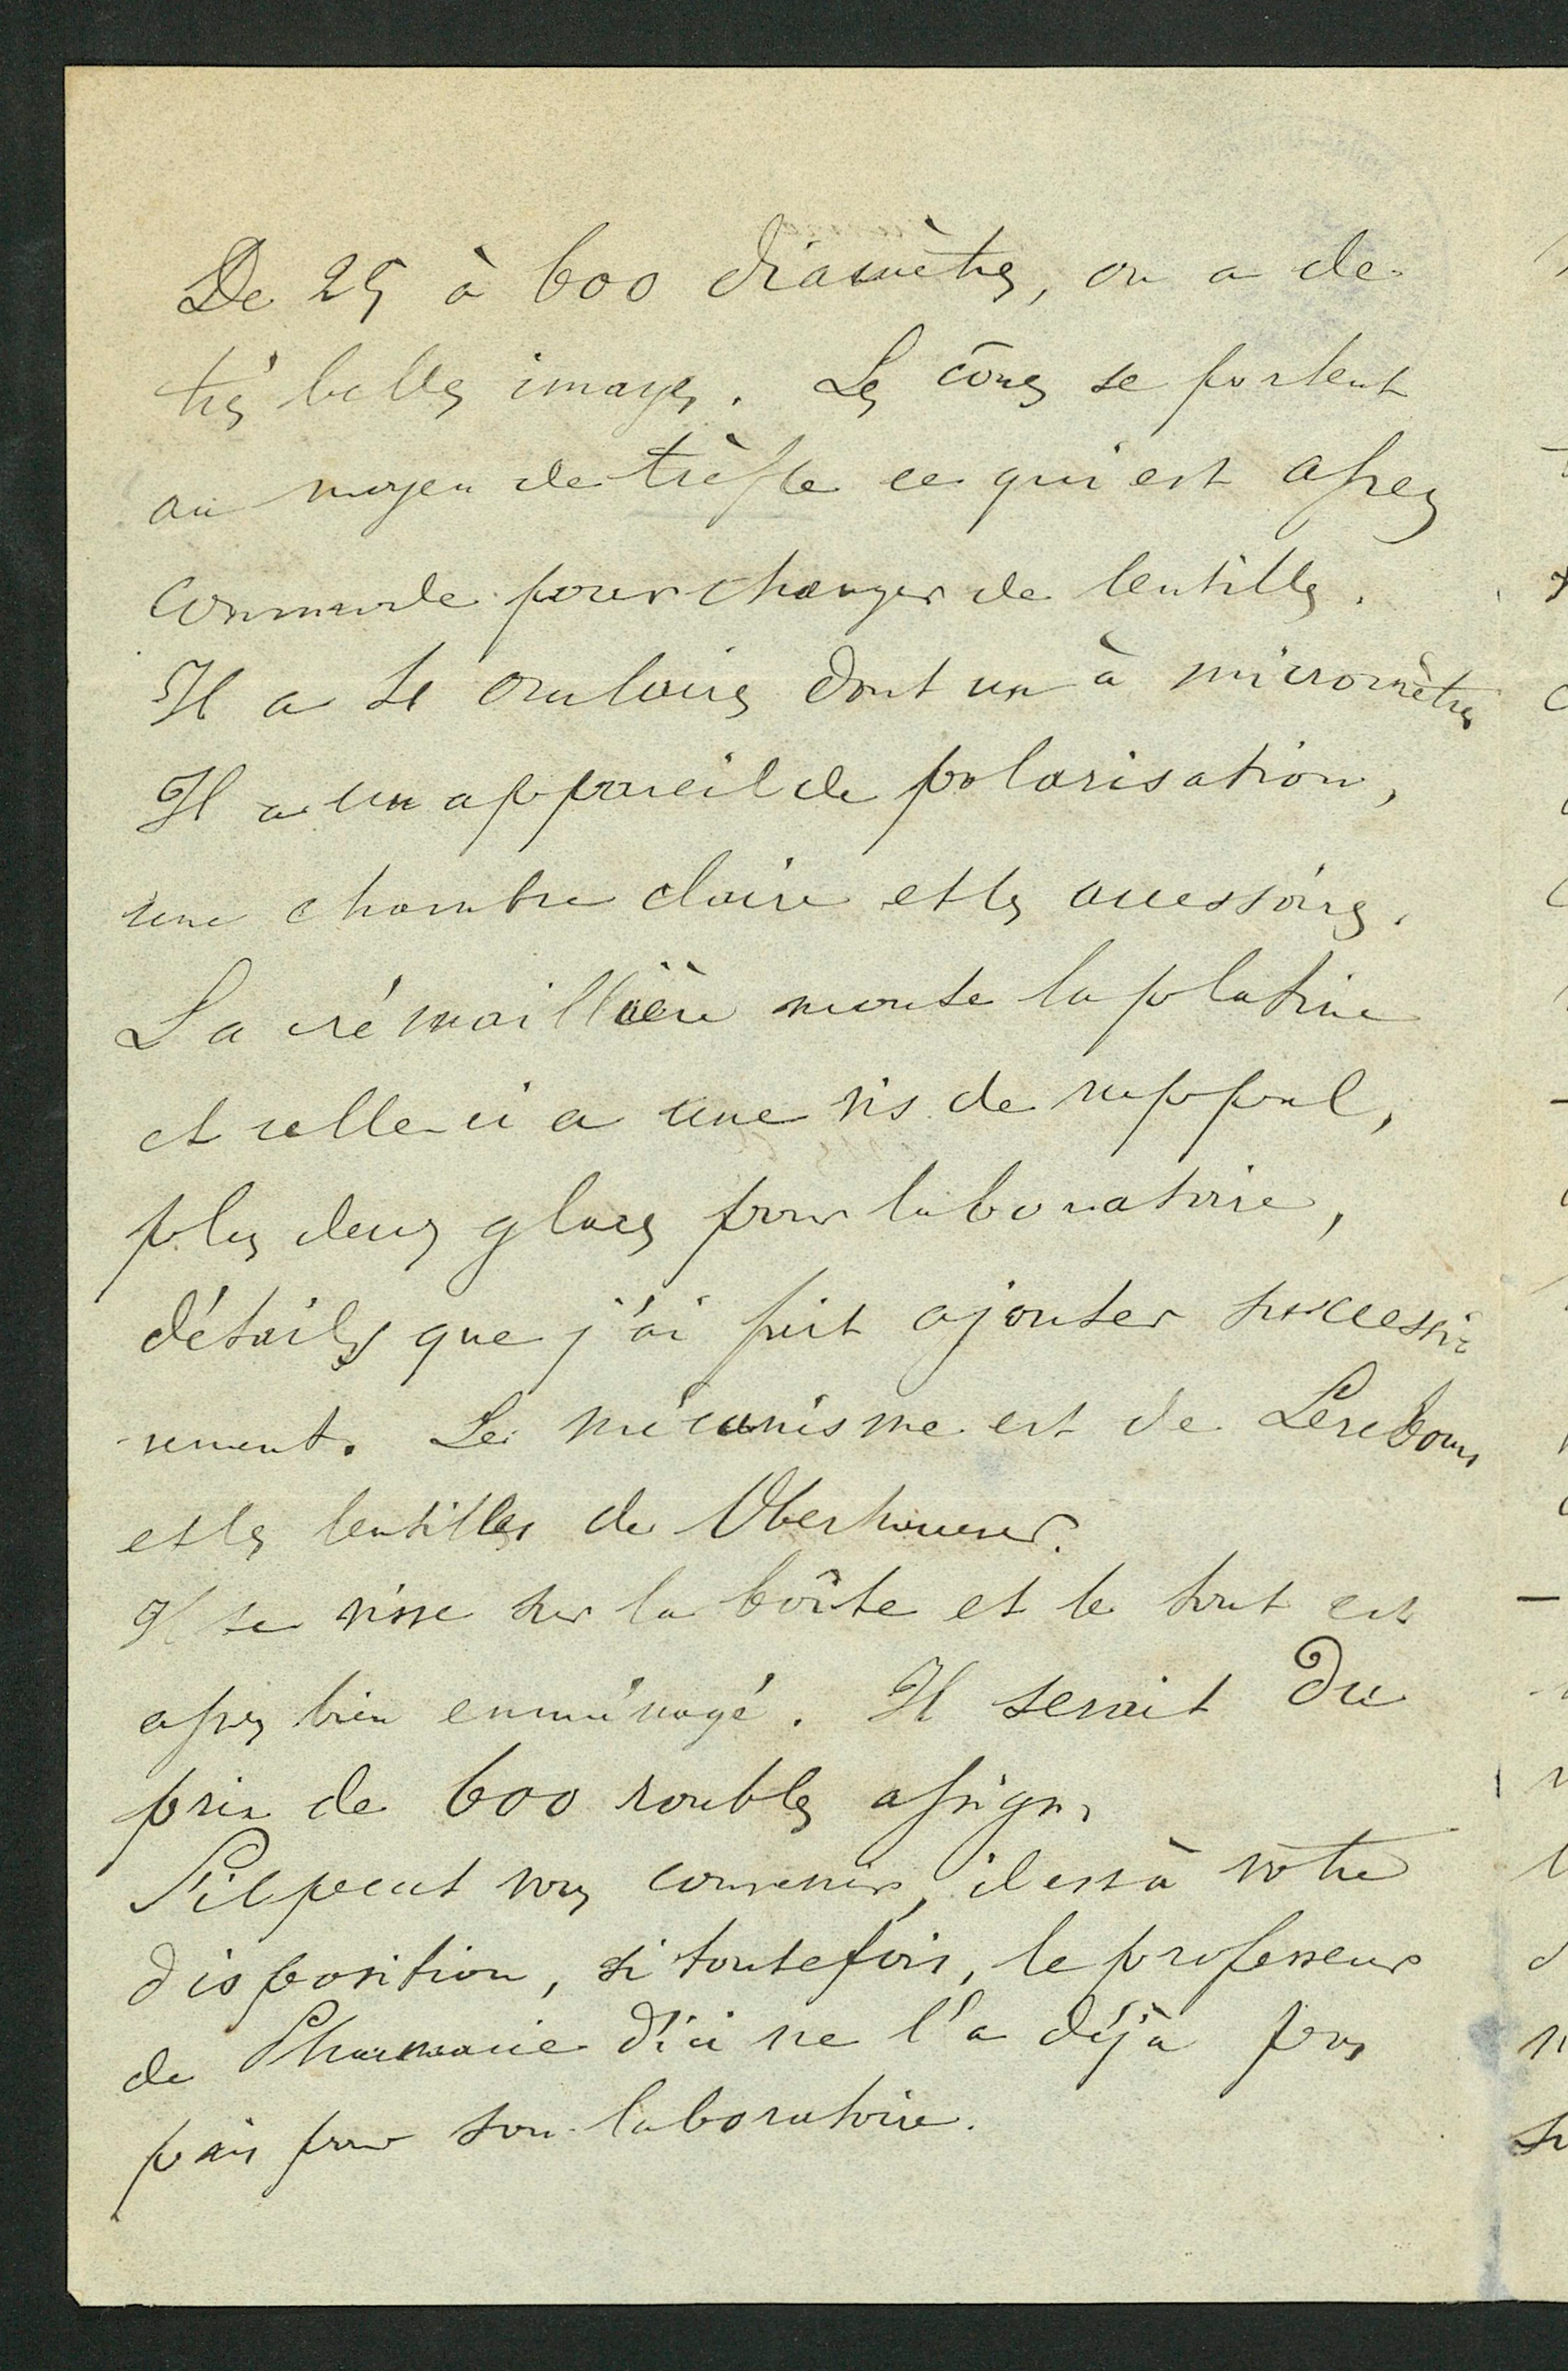 De 25 à 600 diamètres, on a de
très belles images. Les cônes se portent
au moyen de trèfle ce qui est assez
commode pour changer de lentilles.
Il a oculaires dont un à micromètres
Il a un appareil de polarisation,
une chambre claire et les accessoires.
La crémaillière monte la platine
et celle-ci a une vis de rappel,
plus deux glaces pour laboratoire,
détails que j'ai fait ajouter successi-
vement. Le mécanisme est de Lerebours
et les lentilles de Oberhaueser.
Il se visse sur la boîte et le tout est
assez bien emménagé. Il serait du
prix de 600 roubles assign.
S'il peut vous convenir, il est à votre
disposition, si toutefois, le professeur
de Pharmacie d'ici ne l'a déjà pas
pris pour son laboratoire.